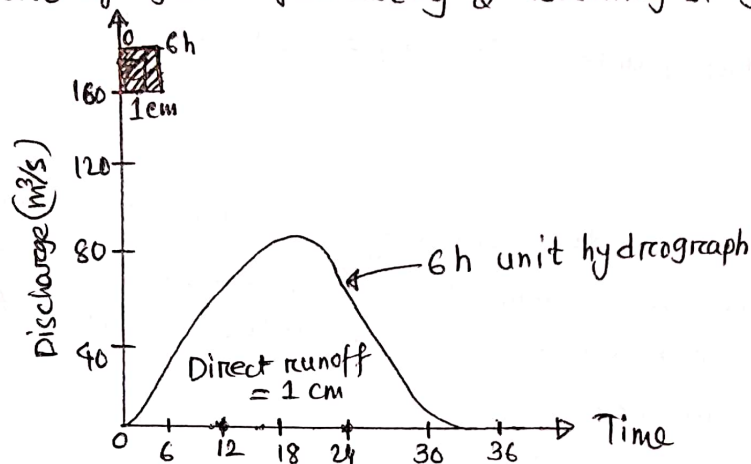 0
6h
160
1cm
120
Discharge (m³/s)
80
6h unit hydrograph
40
Direct runoff
= 1 cm
0 6 12 18 24 30 36
Time